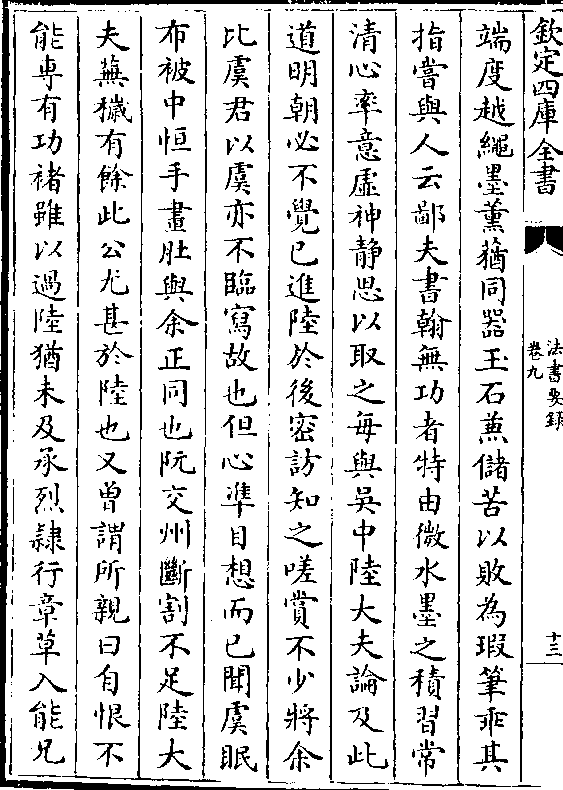 欽定四庫全書
法書要錄
卷九
十三
端度越繩墨薰蕕同器玉石兼儲苦以敗為瑕筆乖其
指嘗與人云鄙夫書翰無功者特由微水墨之積習常
清心率意虛神静思以取之每與吳中陸大夫論及此
道明朝必不覺已進陸於後密訪知之嗟賞不少將余
比虞君以虞亦不臨寫故也但心準目想而已聞虞眠
布被中恒手畫肚與余正同也阮交州斷割不足陸大
夫蕪穢有餘此公尤甚於陸也又曾謂所親曰自恨不
能専有功褚雖以過陸猶未及承烈隷行章草入能兄